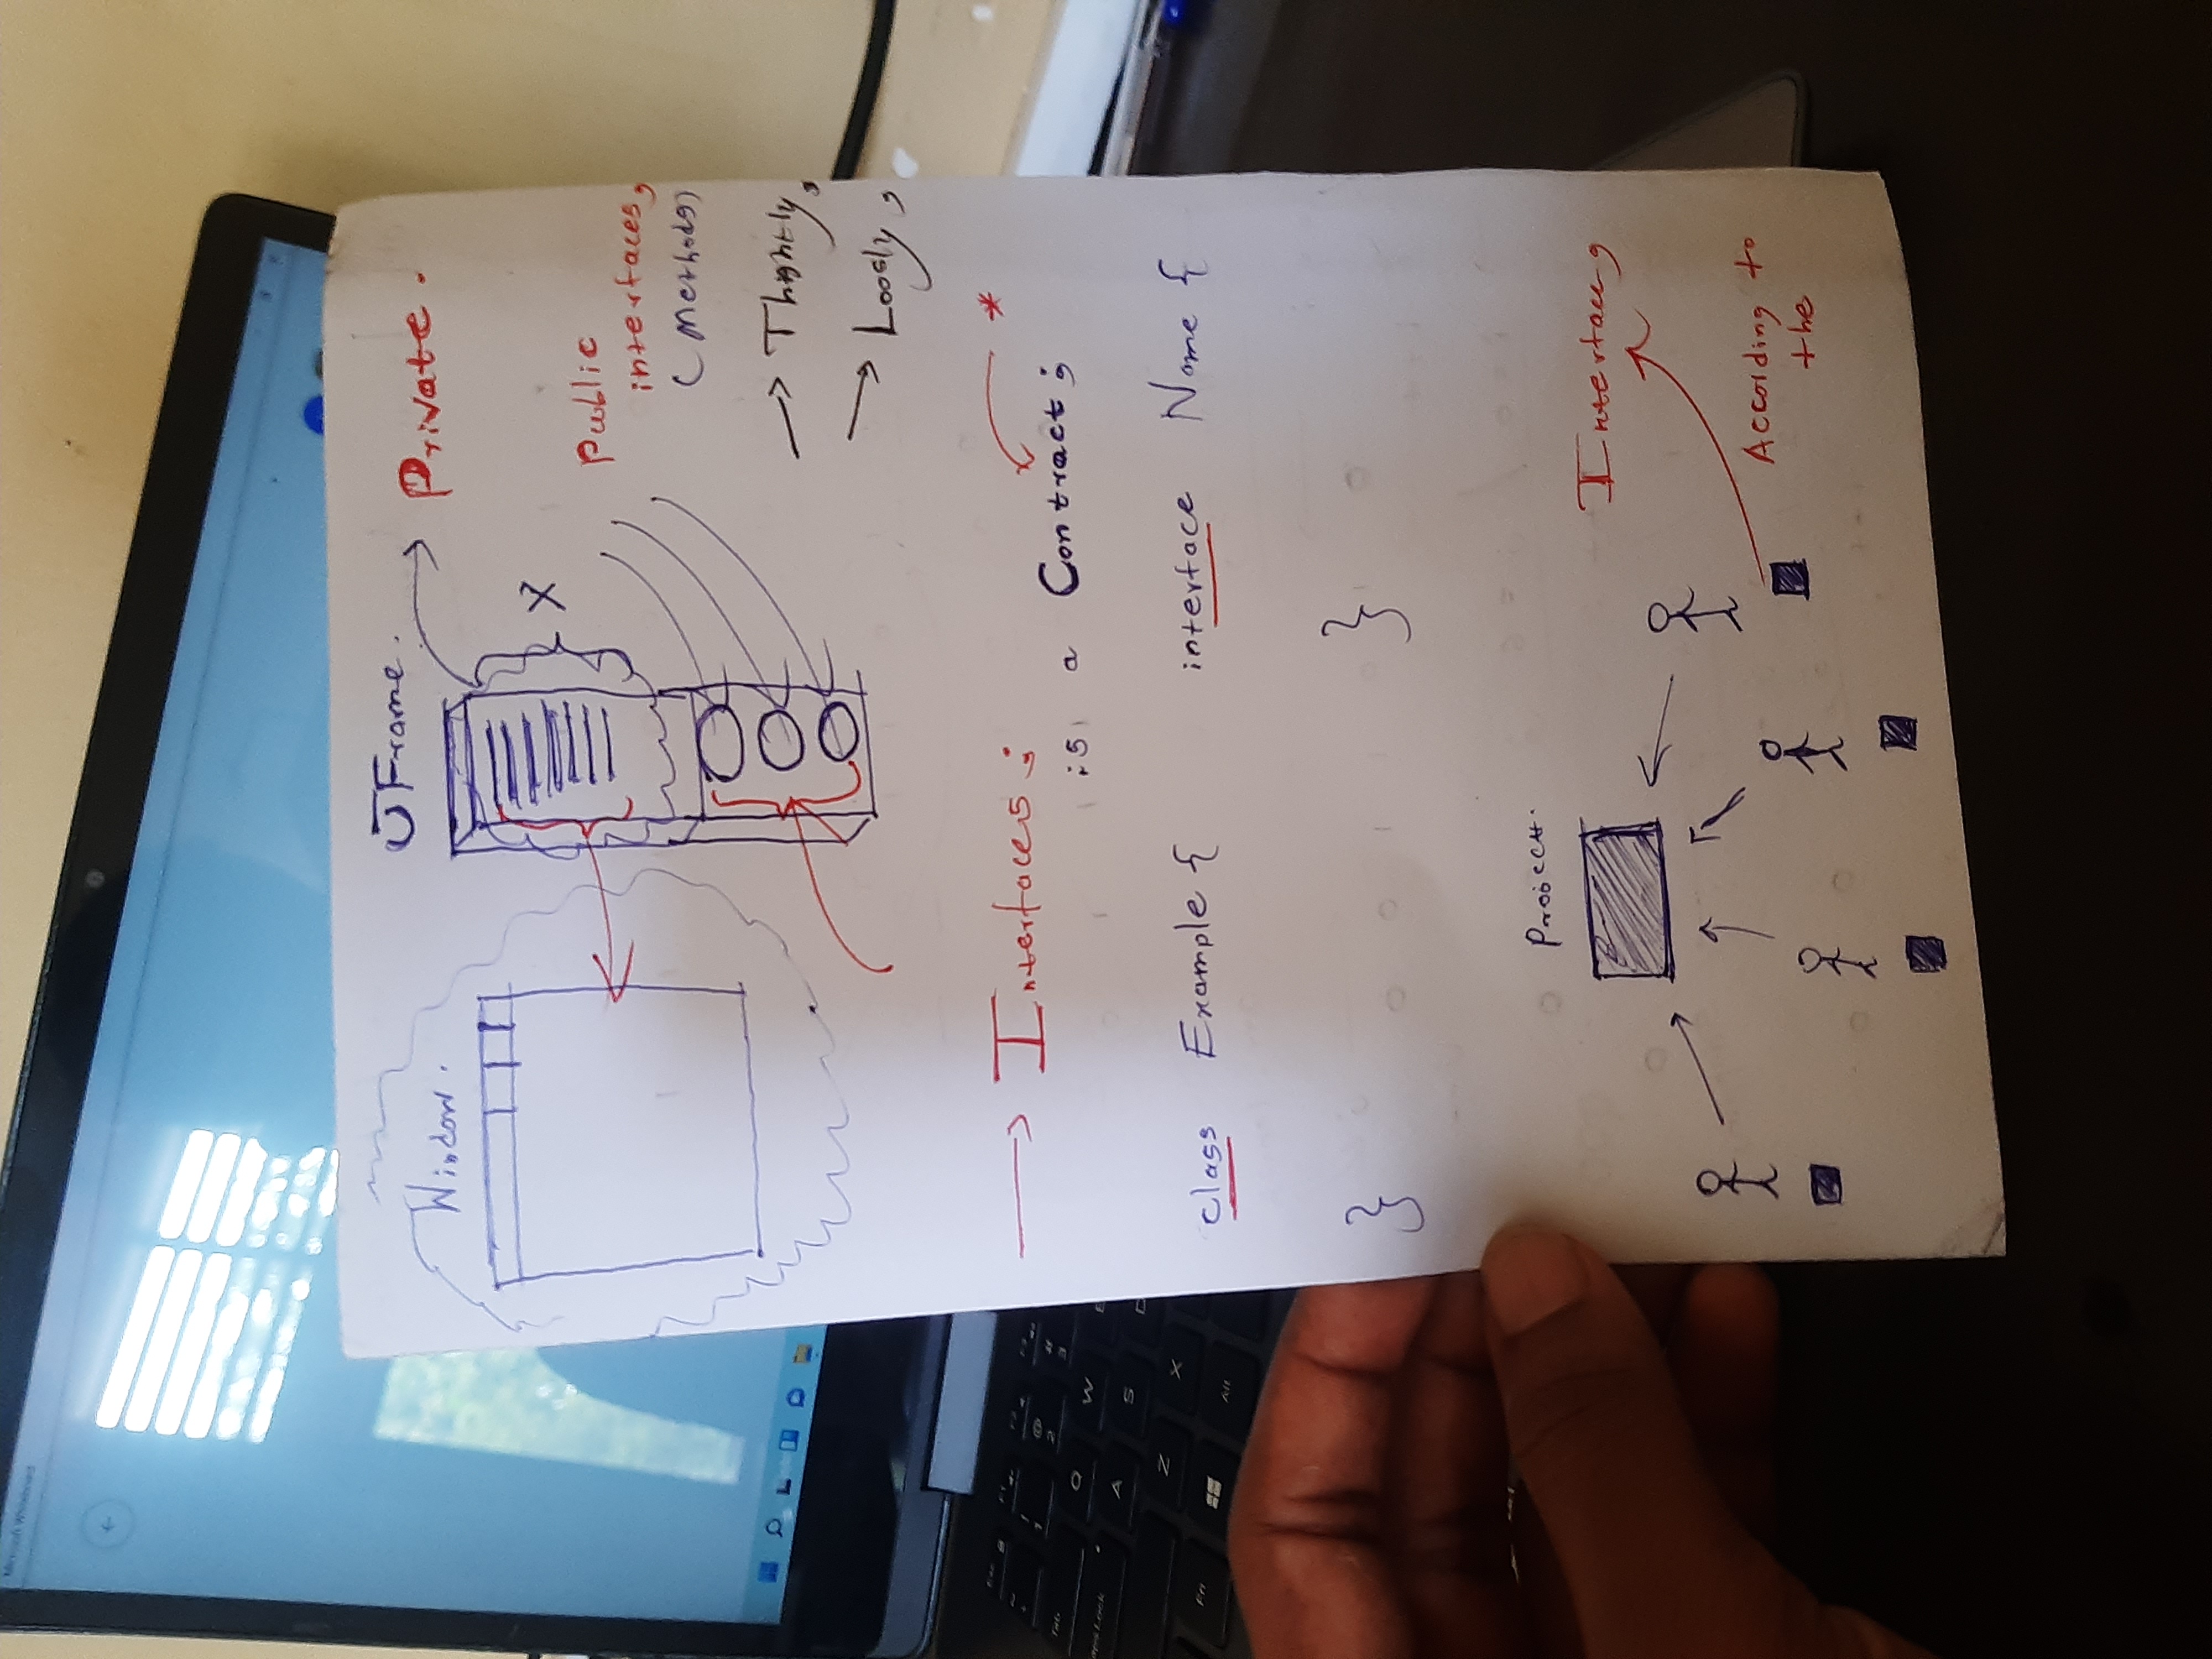 Microsoft Whiteboard
JFrame.
Window.
Private.
X
Public
interfaces,
(Methods)
Thightly,
Loosly,
Interfaces;
*
is a Contract;
class Example {
interface Name {
}
}
Project.
Interface,
According to
the
Tab
Q
W
A
S
D
Z
X
Fn
Alt